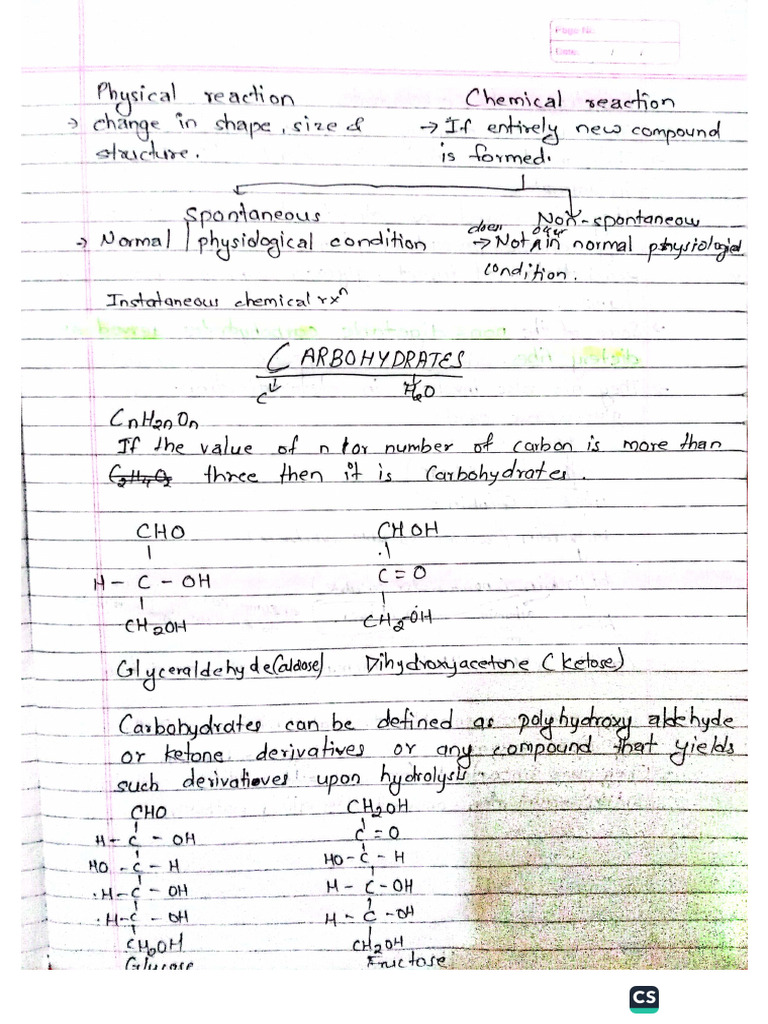 Page No.
Date: / /
Physical reaction
Chemical reaction
→ change in shape, size &
structure.
→ If entirely new compound
is formed.
Spontaneous
→ Normal physiological condition
Non-spontaneous
→ Not occur in normal physiological
condition.
Instataneous chemical rxⁿ
CARBOHYDRATES
C H₂O
CnH2nOn
If the value of n or number of carbon is more than
C₂H₄O₂ three then it is Carbohydrates.
CHO
|
H - C - OH
|
CH2OH
Glyceraldehyde (aldose)
CHOH
|
C = O
|
CH2-OH
Dihydroxyacetone (ketose)
Carbohydrates can be defined as polyhydroxy aldehyde
or ketone derivatives or any compound that yields
such derivatives upon hydrolysis.
CHO
H - C - OH
HO - C - H
H - C - OH
H - C - OH
CH2OH
Glucose
CH2OH
C = O
HO - C - H
H - C - OH
H - C - OH
CH2OH
Fructose
CS